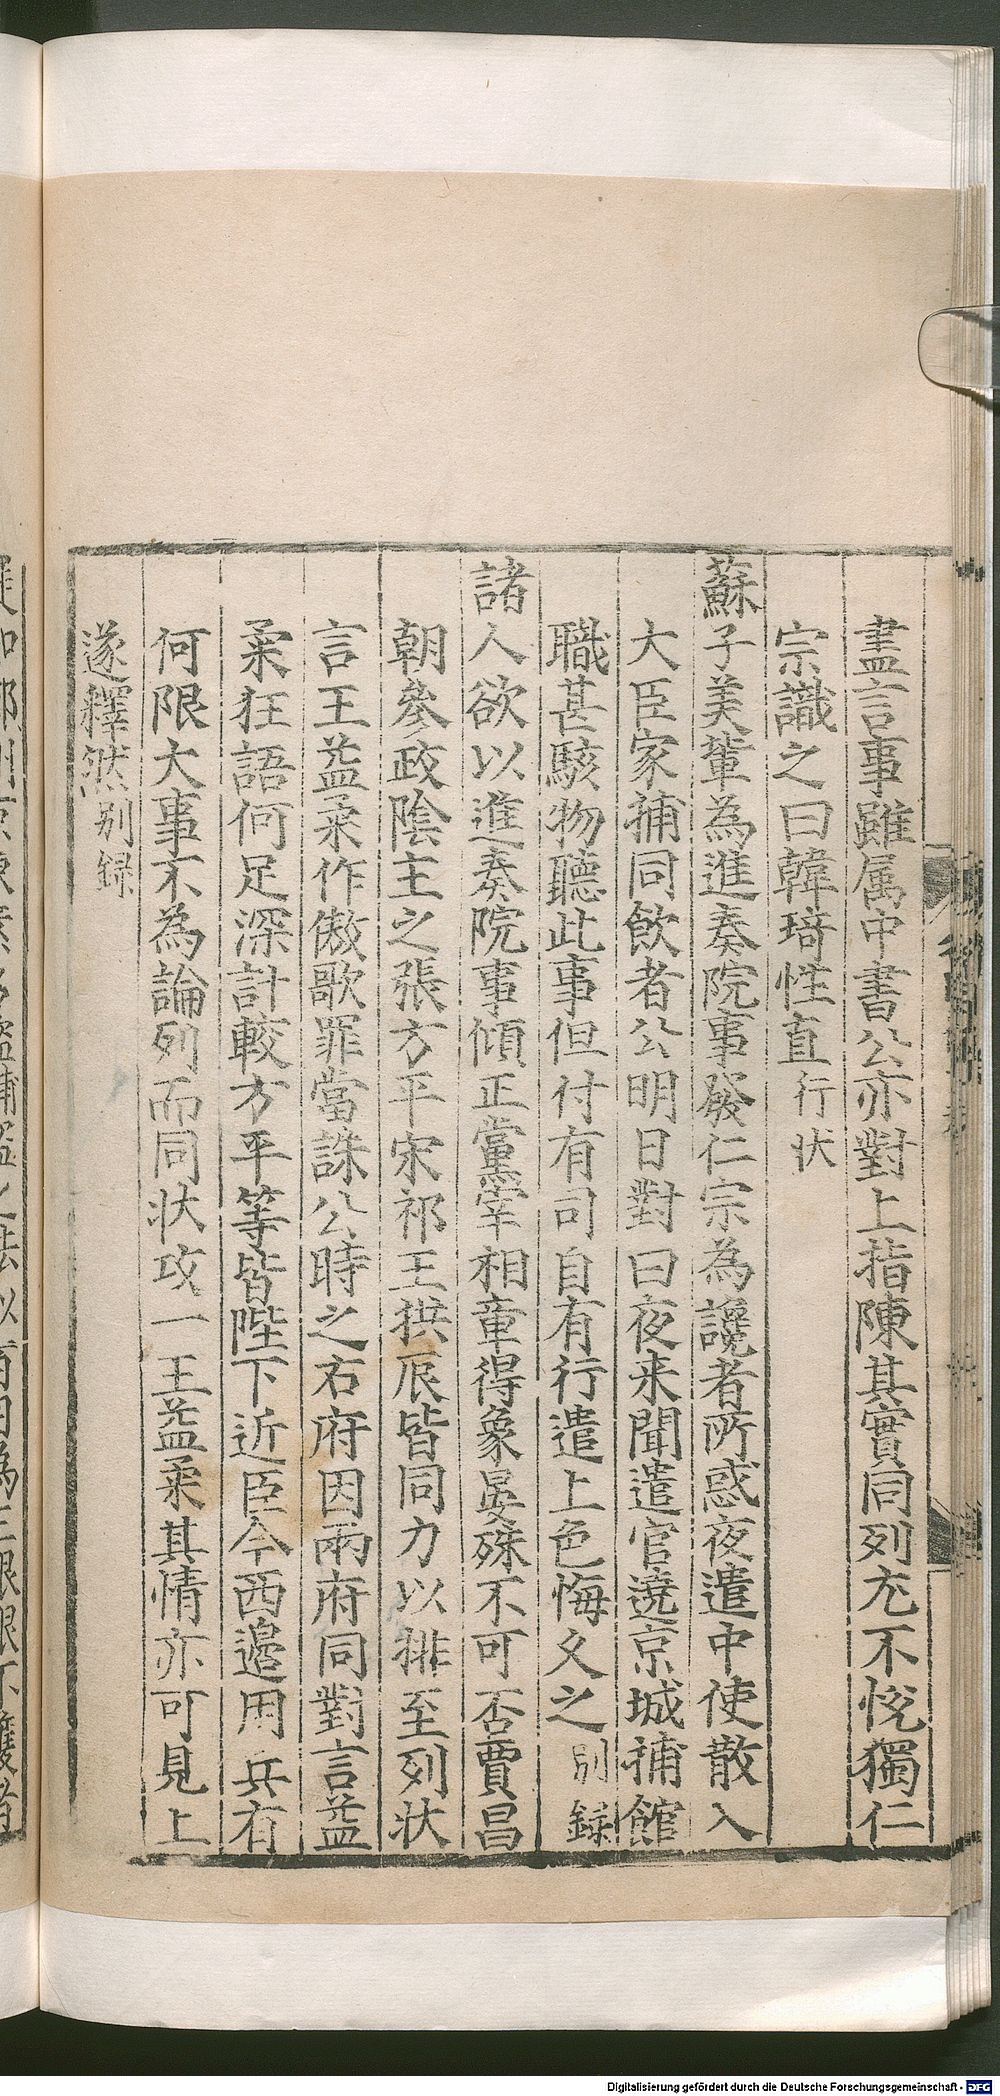 盡言事雖属中書公亦對上指陳其實同列尤不恱獨仁
宗識之曰韓琦性直行状
蘇子美輩為進奏院事發仁宗為讒者所惑夜遣中使散入
大臣家捕同飲者公明日對曰夜来聞遣官遶京城捕館
職甚駭物聽此事但付有司自有行遣上色悔久之別録
諸人欲以進奏院事傾正黨宰相章得象晏殊不可否賈昌
朝參政陰主之張方平宋祁王拱辰皆同力以排至列状
言王益柔作傲歌罪當誅公時之右府因兩府同對言益
柔狂語何足深計較方平等皆陛下近臣今西邊用兵有
何限大事不為論列而同状攻一王益柔其情亦可見上
遂釋然別録
Digitalisierung gefördert durch die Deutsche Forschungsgemeinschaft - DFG